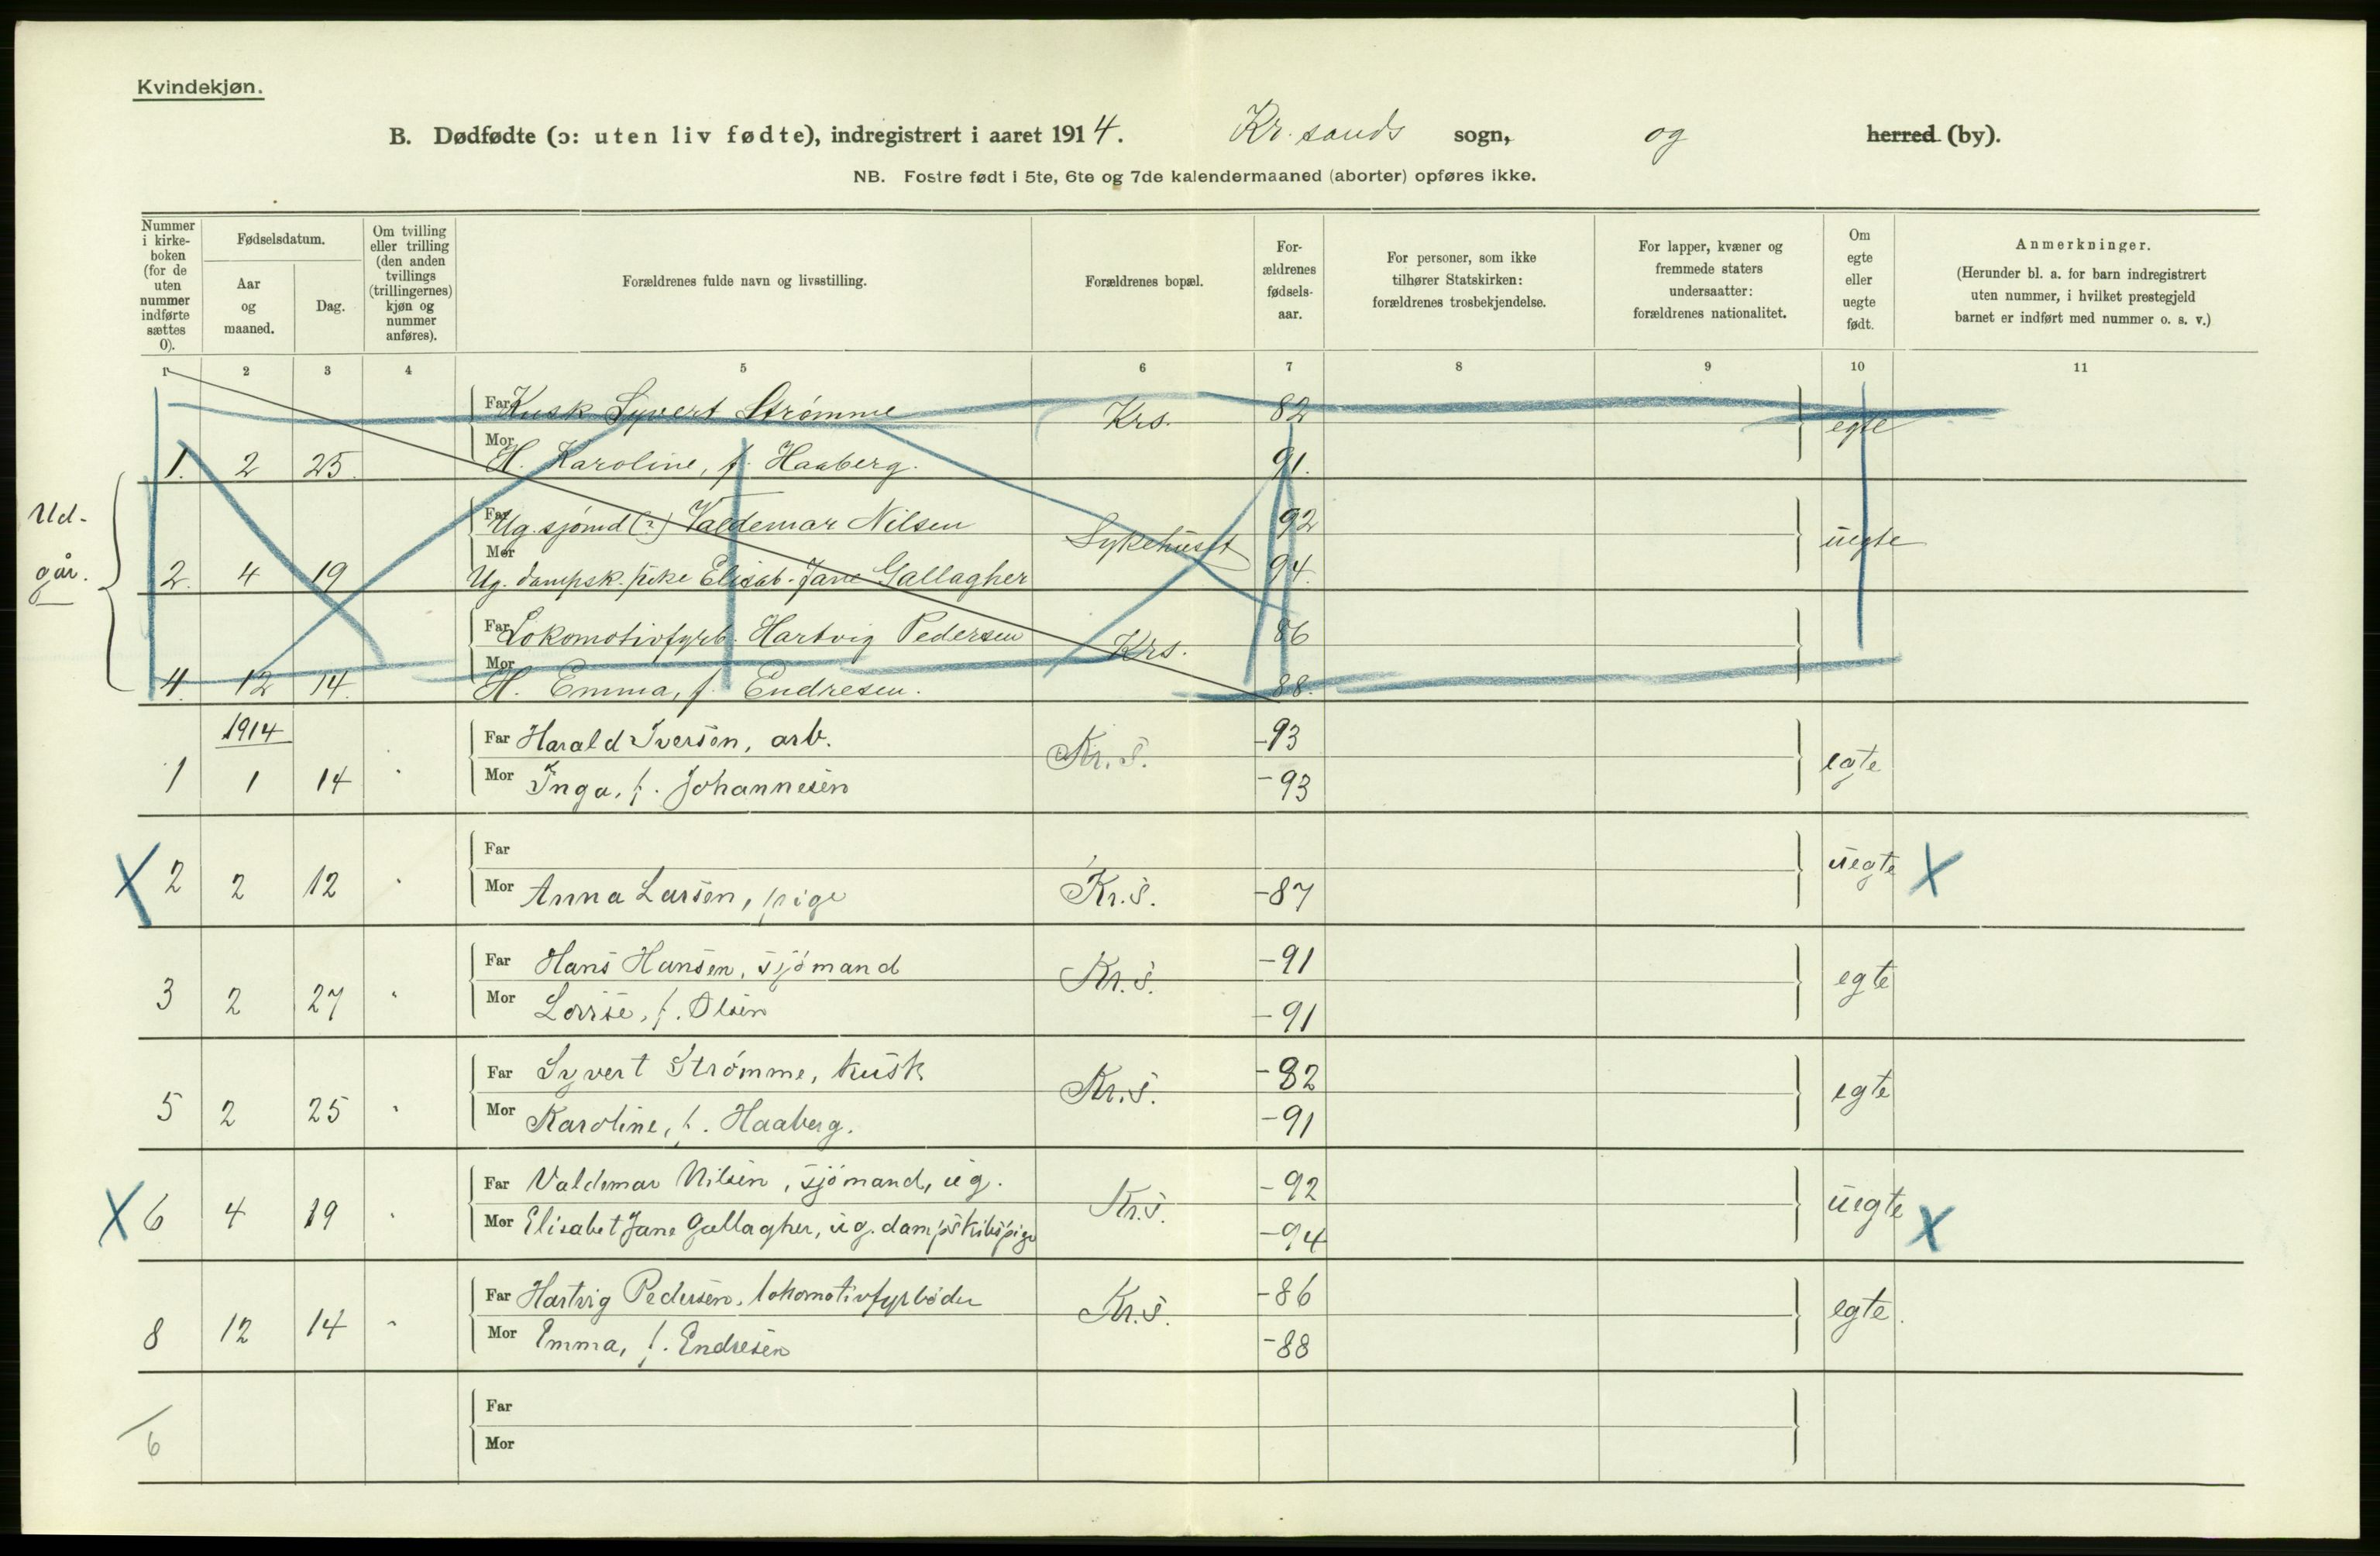 Kvindekjøn.
B. Dødfødte (ɔ: uten liv fødte), indregistrert i aaret 1914. Kr.sands sogn, og herred (by).
NB. Fostre født i 5te, 6te og 7de kalendermaaned (aborter) opføres ikke.
Nummer i kirke-boken (for de uten nummer indførte sættes 0).
Fødselsdatum.
Aar og maaned.
Dag.
Om tvilling eller trilling (den anden tvillings (trillingernes) kjøn og nummer anføres).
Forældrenes fulde navn og livsstilling.
Forældrenes bopæl.
For-ældrenes fødsels-aar.
For personer, som ikke tilhører Statskirken: forældrenes trosbekjendelse.
For lapper, kvæner og fremmede staters undersaatter: forældrenes nationalitet.
Om egte eller uegte født.
Anmerkninger.
(Herunder bl. a. for barn indregistrert uten nummer, i hvilket prestegjeld barnet er indført med nummer o. s. v.)
1 2 3 4 5 6 7 8 9 10 11
Far Kusk Syvert Strømme Krs. 82 egte
1. 2 25. Mor H. Karoline, f. Haaberg. 91.
Ud-
går.
Far Ug. sjømd (?) Valdemar Nilsen Sykehuset 92 uegte
2. 4 19 Mor Ug. dampsk. pike Elisab. Jane Gallagher 94.
Far Lokomotivfyrb. Hartvig Pedersen Krs. 86
4. 12 14. Mor H. Emma, f. Endresen. 88.
1914
Far Harald Iversen, arb. Kr. S. -93 egte
1 1 14 Mor Inga, f. Johannesen -93
Far uegte X
X 2 2 12 Mor Anna Larsen, pige Kr.S. -87
Far Hans Hansen, sjömand Kr.S. -91 egte
3 2 27 Mor Lovise, f. Olsen -91
Far Syvert Strømme, kusk Kr.S. -82 egte
5 2 25 Mor Karoline, f. Haaberg. -91
Far Valdemar Nilsen, sjömand, ug. Kr.S. -92 uegte
X 6 4 19 Mor Elisabet Jane Gallagher, ug. dampskibspige -94 X
Far Hartvig Pedersen, lokomotivfyrbøder Kr.S. -86 egte.
8 12 14 Mor Emma, f. Endresen -88
Far
6
Mor